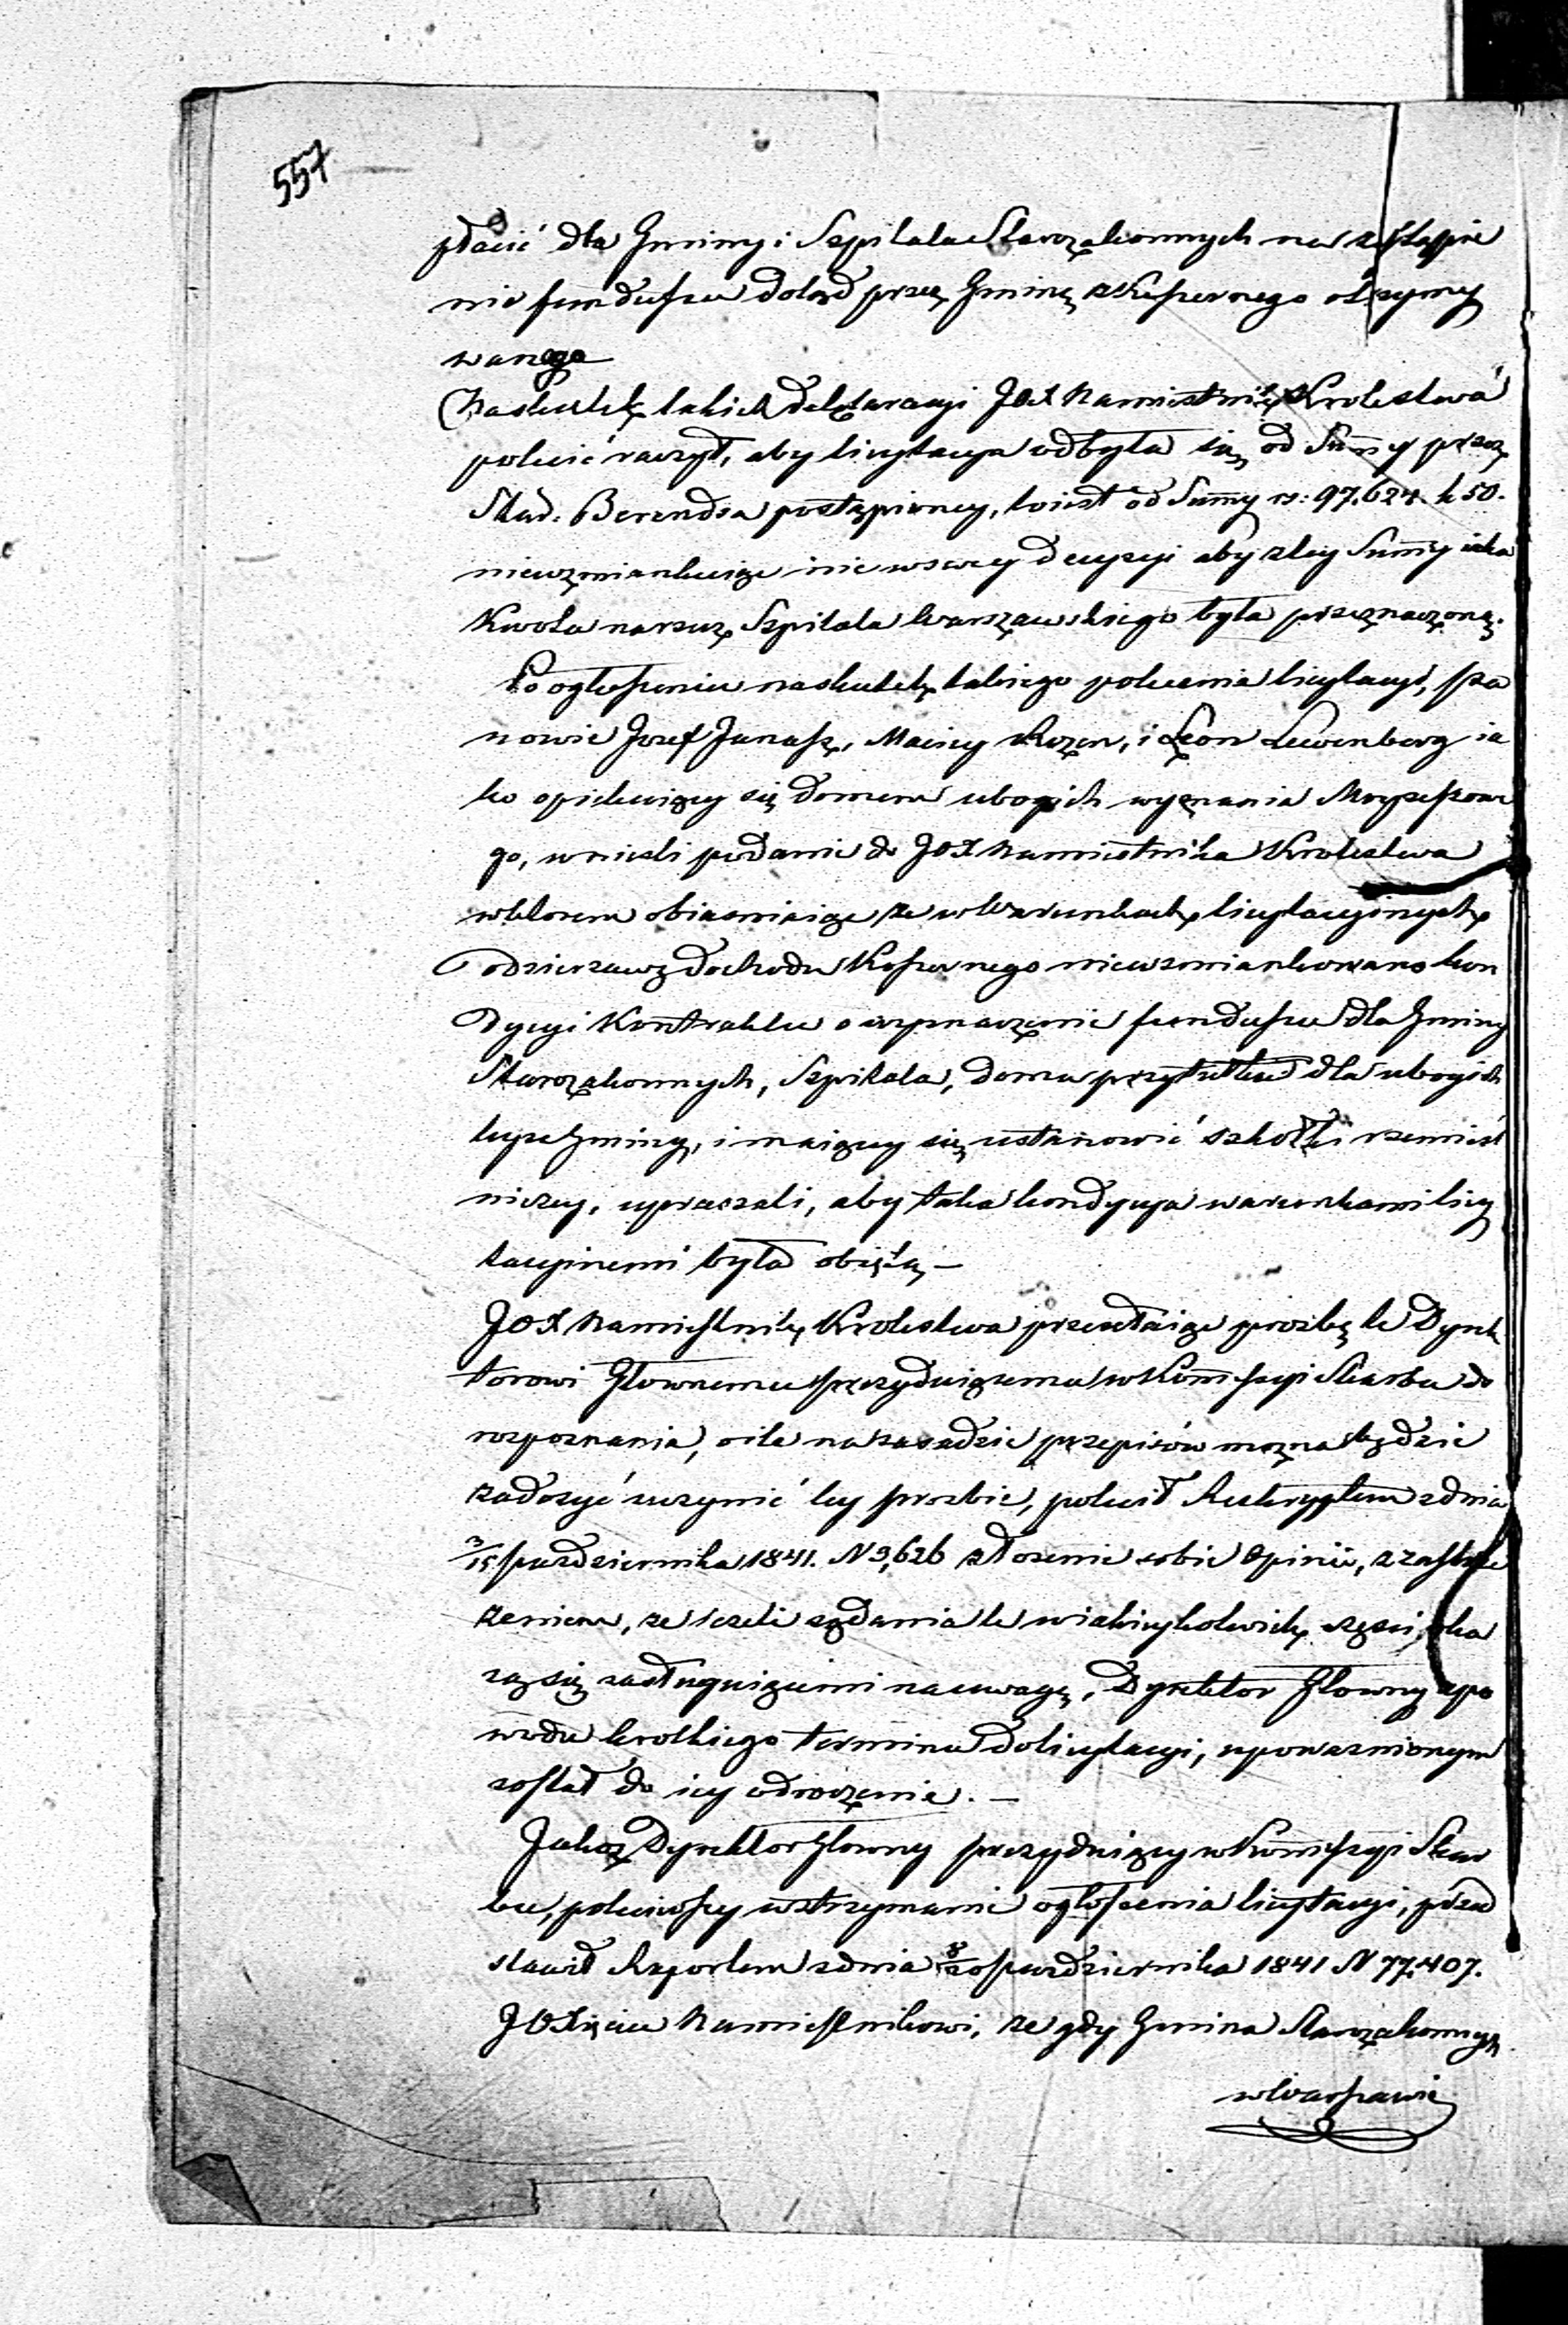 557
płacić dla Gminy i Szpitala Starozakonnych na zastąpie
nie funduszu dotąd przez Gminę z Koszernego otrzymy
wanego
Naskutek takich deklaracyi JOX Namiestnik Krolestwa
polecić raczył, aby licytacya odbyła się od Summy przez
Staroz. Berendsa postąpioney, to iest od Summy rs: 97,624. k 50.
niewzmiankuiąc nic w swey decyzyi aby z tey Summy iaka
Kwota na rzecz Szpitala Warszawskiego była przeznaczoną.
Po ogłoszeniu naskutek takiego polecenia licytacyi, sta
nowie Jozef Janasz, Maciey Rozen, i Leon Lewenberg ia
ko opiekuiący się domem ubogich wyznania Moyzeszowe
go, wnieśli podanie do JOX Namiestnika Krolestwa
w ktorem obiasniaiąc ze w Warunkach licytacyinych
o dzierzawę dochodu Koszernego niewzmiankowano kon
dycyi Kontraktu o wyznaczenie funduszu dla Gminy
Starozakonnych, Szpitala, domu przytułku dla ubogich
teyze Gminy, i maiącey się ustanowić szkołki rzemieśl
niczey, upraszali, aby taka kondycya warunkami licy
tacyinemi była obiętą. —
JOX Namiestnik Krolestwa przesełaiąc prozbę tę Dyrek
torowi Głownemu prezyduiącemu w Kommissyi Skarbu do
rozpoznania, o ile na zasadzie przepisów mozna będzie
zadosyć uczynić tey prosbie, polecił Reskryptem z dnia
3/15 pazdziernika 1841. N 3,626 złozenie sobie Opinii, z zastrze
zeniem, ze iezeli ządania te w iakieykolwiek części oka
zą się zasługuiącemi na uwagę, Dyrektor Głowny z po
wodu krotkiego terminu do licytacyi, upowaznionym
został do iey odroczenia. —
Jakoz Dyrektor Głowny prezyduiący w Kommissyi Skar
bu, poleciwszy wstrzymanie ogłoszenia licytacyi, przed
stawił Raportem z dnia 8/20 pazdziernika 1841 N 77,407.
JOXięciu Namiestnikowi, ze gdy Gmina Starozakonnych
w Warszawie